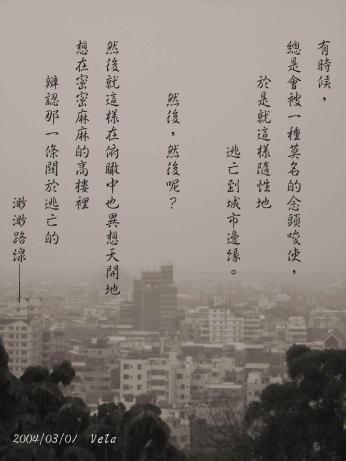 有時候，
總是會被一種莫名的念頭唆使，
於是就這樣隨性地
逃亡到城市邊緣。
然後，然後呢？
然後就這樣在俯瞰中也異想天開地
想在密密麻麻的高樓裡
辨認那一條關於逃亡的
渺渺路線——
2004/03/01 Vela